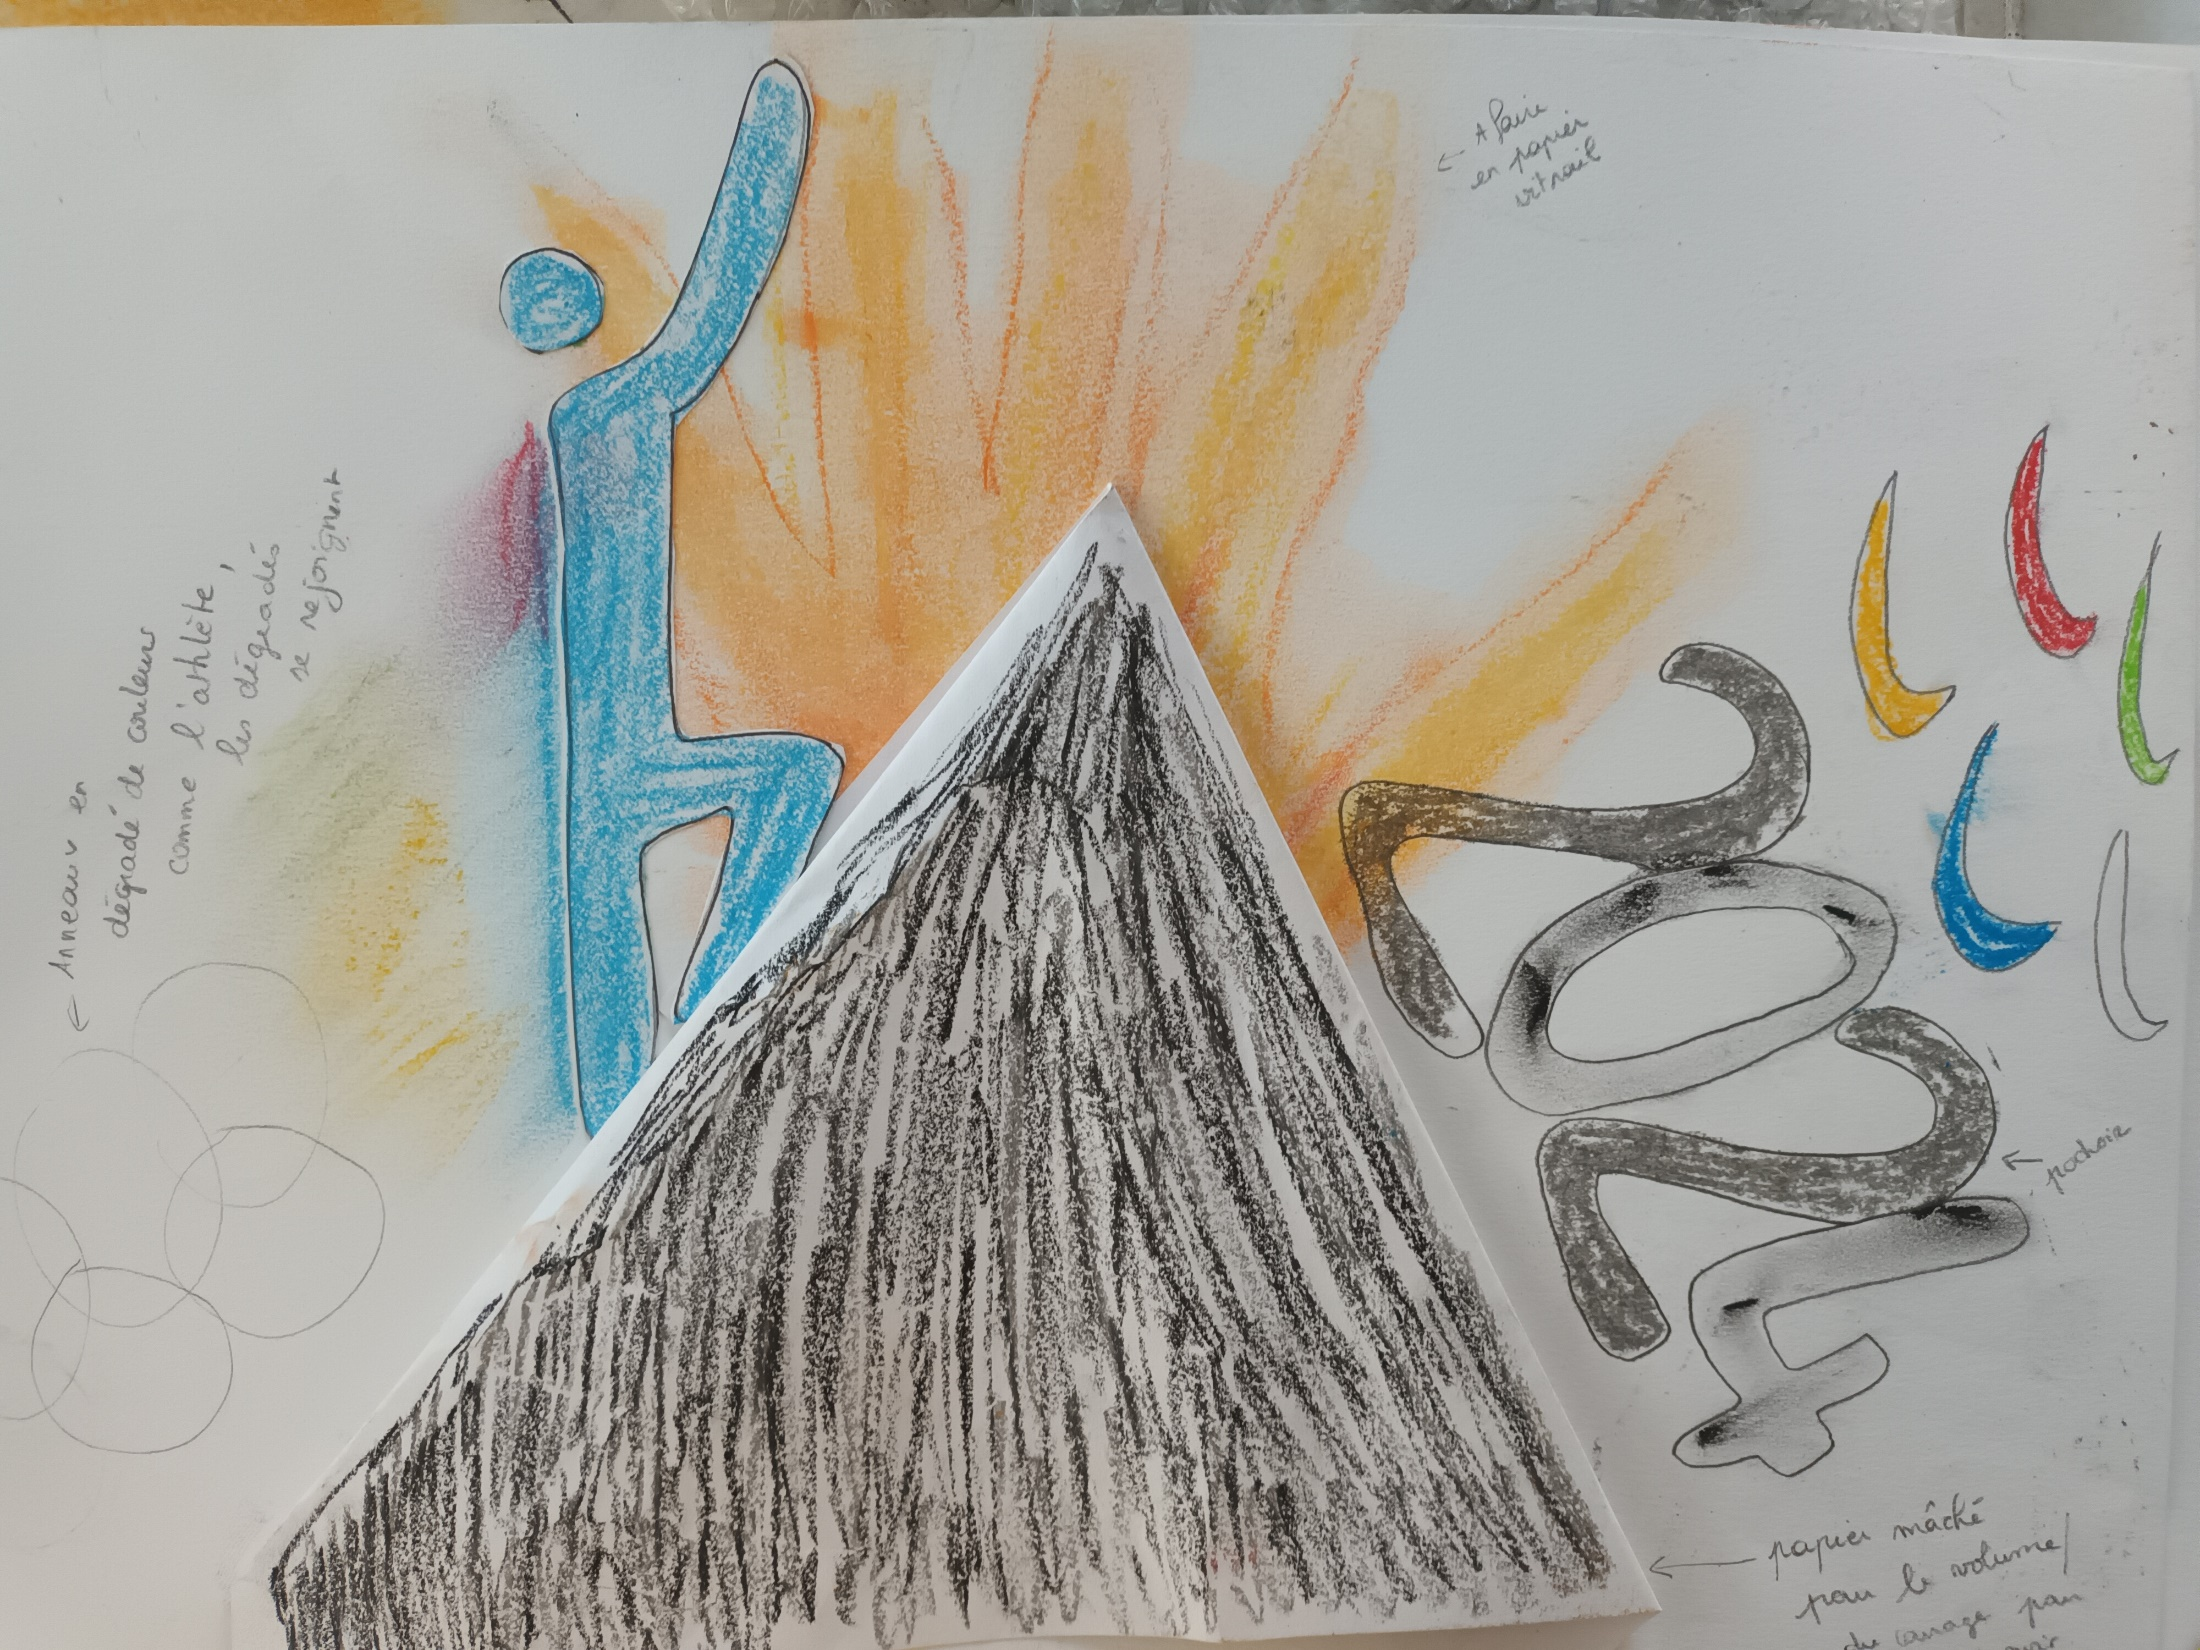 A faire
en papier
vitrail
Anneaux en
dégradé de couleurs
comme l'athlète,
les dégradés
se rejoignent
2024
pochoir
papier mâché
pour le volume/